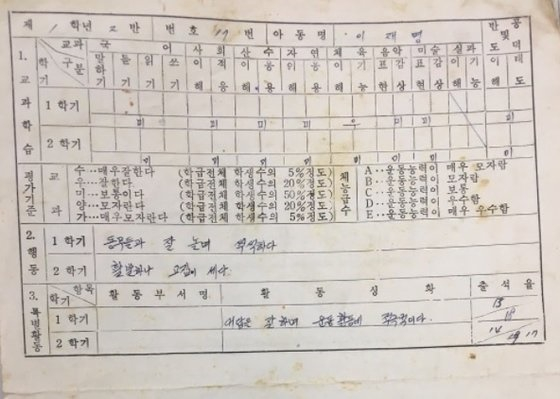 제 1 학년 2 반 번호 17 번 아동명 이재명
반공 및 도덕
1. 교과학습
교과 국어 사회 산수 자연 체육 음악 미술 실과
학기 구분 말하기 듣기 읽기 쓰기 이해 적응 이해 응용 이해 응용 이해 기능 표현 감상 표현 감상 이해 기능 이해 태도
1 학기
미 미 미 미 우 미 미
2 학기
미 미 미 미 미 미 미
평가기준
교과
수…매우잘한다 (학급전체 학생수의 5%정도)
우…잘한다 (학급전체 학생수의 20%정도)
미…보통이다 (학급전체 학생수의 50%정도)
양…모자란다 (학급전체 학생수의 20%정도)
가…매우모자란다 (학급전체 학생수의 5%정도)
체능급수
A…운동능력이 매우 모자람
B…운동능력이 모자람
C…운동능력이 보통
D…운동능력이 우수함
E…운동능력이 매우 우수함
2. 행동
1 학기 동무들과 잘 놀며 씩씩하다
2 학기 활발하나 고집이 세다.
3. 특별활동
학기 항목 활동부서명 활동상황 출석율
1 학기 대답은 잘 하며 운동
2 학기